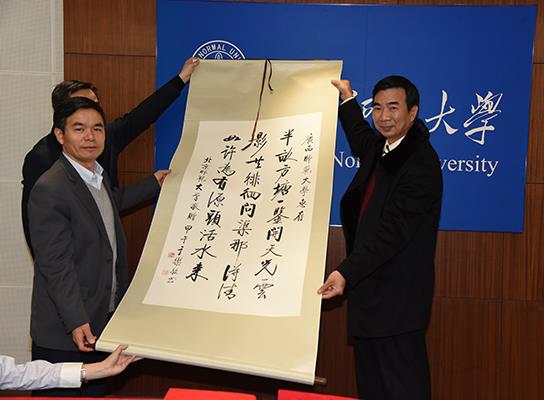 NORMAL UNI
大学
Nor versity
廣西師範大學惠存
半畝方塘一鑒開天光雲
影共徘徊問渠那得清
如許為有源頭活水來
北京師範大學敬贈 甲午